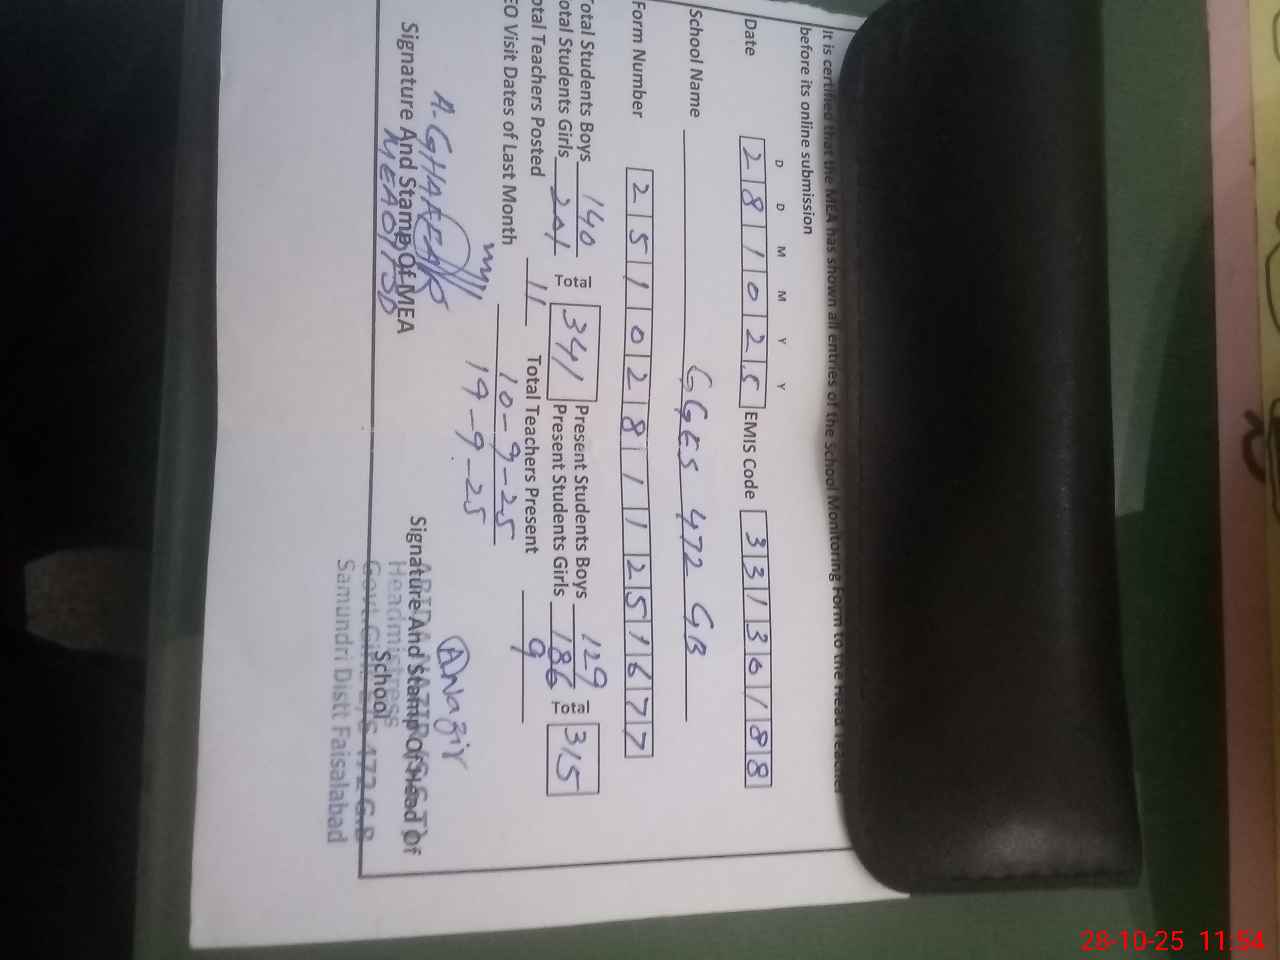 It is certified that the MEA has shown all entries of the School Monitoring Form to the Head Teacher
before its online submission
D D M M Y Y
Date 2 8 1 0 2 5 EMIS Code 3 3 1 3 0 1 8 8
School Name GGES 472 GB
Form Number 2 5 1 1 0 2 8 1 1 1 2 5 1 6 7 7
Total Students Boys 140 Total 341 Present Students Boys 129 Total 315
Total Students Girls 201 Present Students Girls 186
otal Teachers Posted 11 Total Teachers Present 9
EO Visit Dates of Last Month 10-9-25
19-9-25
A. Nazir
Signature And Stamp Of MEA Signature And Stamp Of Head Of
School
Headmistress
Govt. Girls E/S 472 G.B
Samundri Distt Faisalabad
28-10-25 11:54